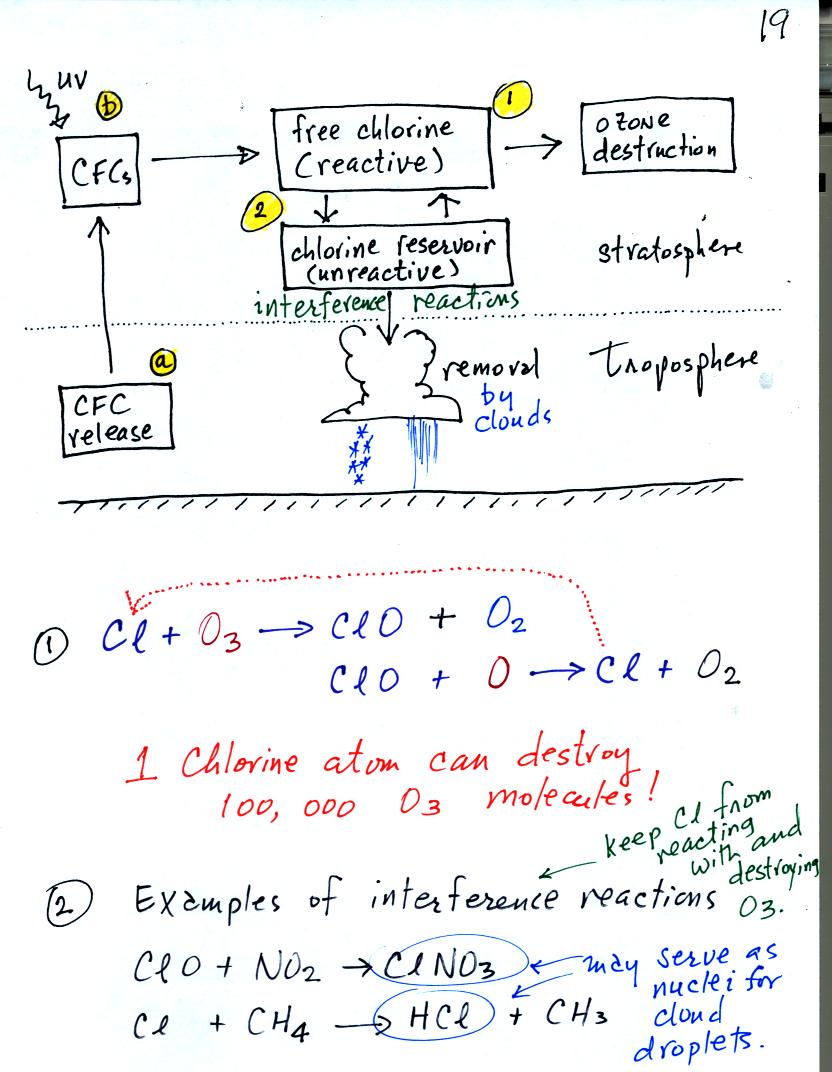 19
UV
b
CFCs
free chlorine
(reactive)
1
OZONE
destruction
2
chlorine reservoir
(unreactive)
stratosphere
interference reactions
a
CFC
release
removal
by
clouds
Troposphere
1 Cl + O3 → ClO + O2
ClO + O → Cl + O2
1 Chlorine atom can destroy
100,000 O3 molecules!
keep Cl from
reacting
with and
destroying
O3.
2 Examples of interference reactions
ClO + NO2 → ClNO3
Cl + CH4 → HCl + CH3
may serve as
nuclei for
cloud
droplets.